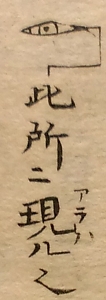 此所ニ現ル之
アラハ